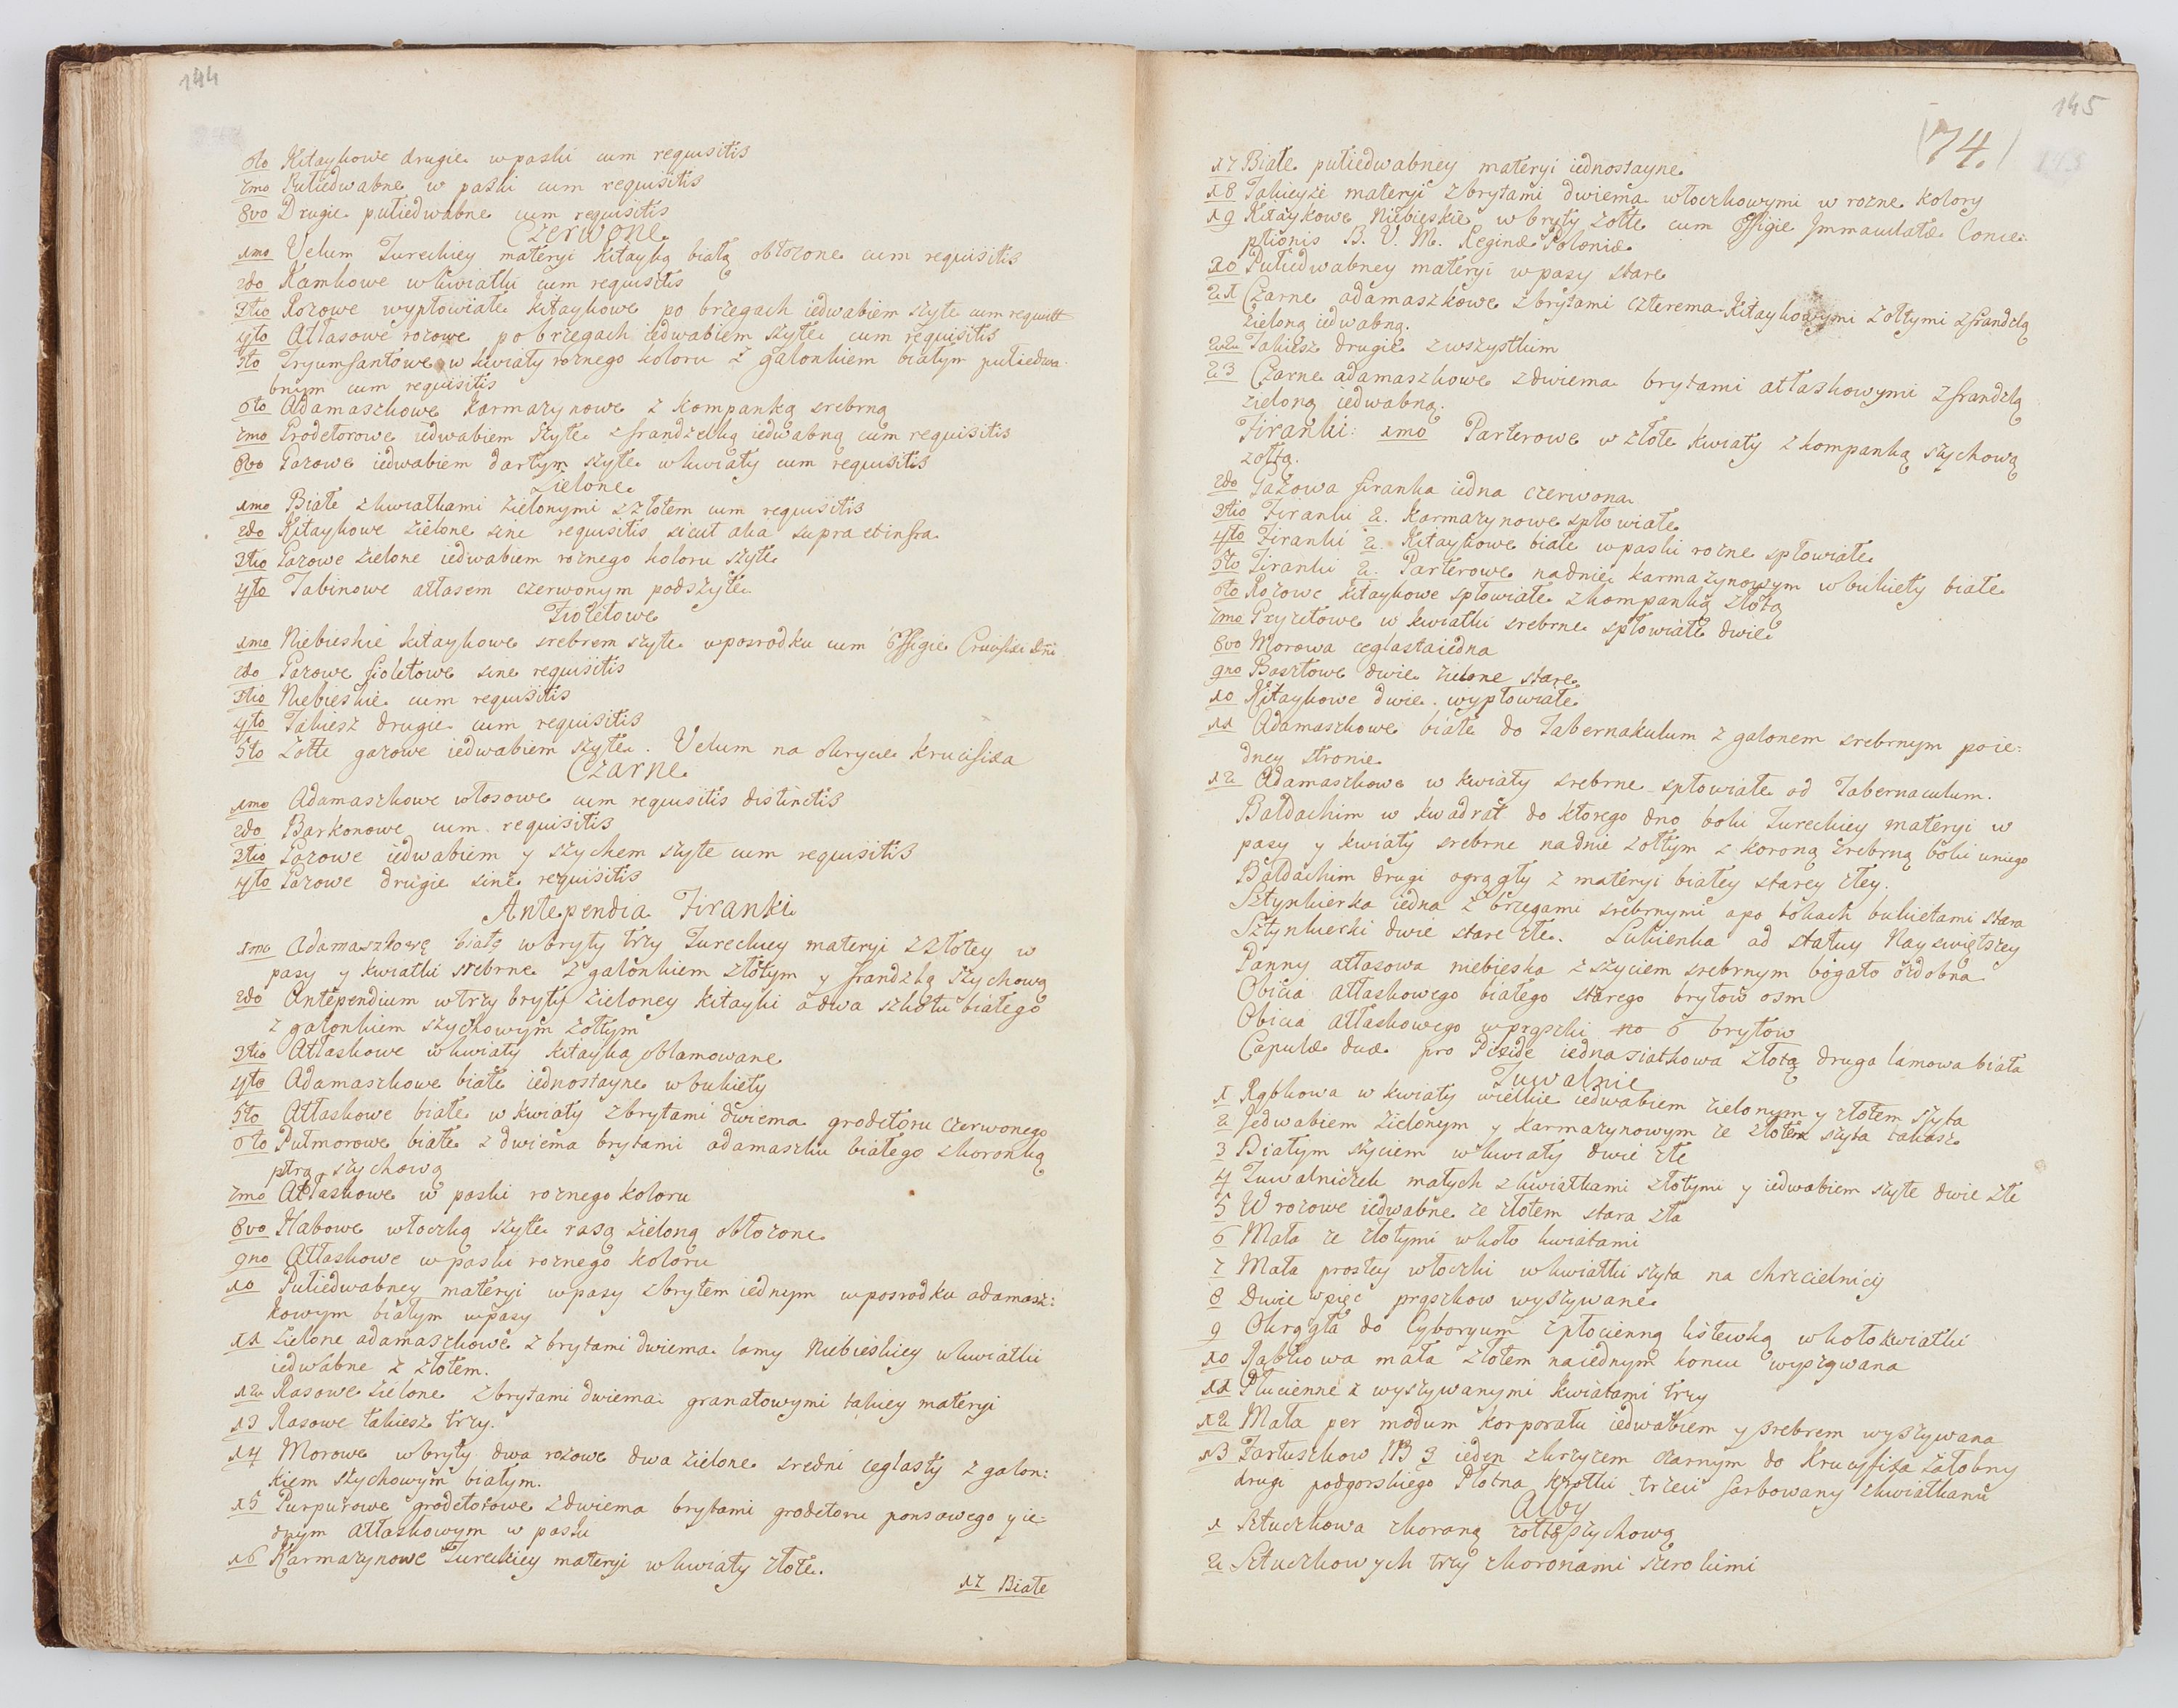 144
6to Kitaykowe drugie w paski cum requisitis
7mo Pułiedwabne w paski cum requisitis
8vo Drugie pułiedwabne cum requisitis
Czerwone
1mo Velum Tureckiey materyi kitayką białą obłożone cum requisitis
2do Kamkowe w kwiatki cum requisitis
3tio Rozowe wypłowiałe kitaykowe po brzegach iedwabiem szyte cum requisit
4to Atłasowe rozowe po brzegach iedwabiem szyte cum requisitis
5to Tryumfantowe w kwiaty roznego koloru z galonkiem białym pułiedwa
bnym cum requisitis
6to Adamaszkowe karmazynowe z kompanką srebrną
7mo Grodetorowe iedwabiem szyte z frandzelką iedwabną cum requisitis
8vo Gazowe iedwabiem dartym szyte w kwiaty cum requisitis
Zielone
1mo Białe z kwiatkami zielonymi z złotem cum requisitis
2do Kitaykowe zielone sine requisitis sicut alia supra et infra
3tio Gazowe zielone iedwabiem roznego koloru szyte
4to Tabinowe atłasem czerwonym podszyte
Fioletowe
1mo Niebieskie kitaykowe srebrem szyte w posrodku cum Effigie Crucifixi Dni
2do Gazowe fioletowe sine requisitis
3tio Niebieskie cum requisitis
4to Takiesz drugie cum requisitis
5to Zołte gazowe iedwabiem szyte. Velum na okrycie krucifixa
Czarne
1mo Adamaszkowe włosowe cum requisitis distinctis
2do Barkonowe cum requisitis
3tio Gazowe iedwabiem y szychem szyte cum requisitis
4to Gazowe drugie sine requisitis
Antependia Firanki
1mo Adamaszkowe białe w bryty trzy Tureckiey materyi z złotey w
pasy y kwiatki srebrne z galonkiem złotym y frandzlą szychową
2do Antependium w trzy bryty zieloney kitayki a dwa szkotu białego
z galonkiem szychowym zołtym
3tio Atłaskowe w kwiaty kitayką oblamowane
4to Adamaszkowe białe iednostayne w bukiety
5to Atłaskowe białe w kwiaty z brytami dwiema grodetoru czerwonego
6to Pułmorowe białe z dwiema brytami adamaszku białego z koronką
szychową
7mo Atłaskowe w paski roznego koloru
8vo Habowe włoczką szyte rasą zieloną obłożone
9no Atłaskowe w paski roznego koloru
10 Pułiedwabney materyi w pasy z brytem iednym w posrodku adamasz:
kowym białym w pasy
11 Zielone adamaszkowe z brytami dwiema lamy Niebieskiey w kwiatki
iedwabne z złotem.
12 Rasowe zielone z brytami dwiema granatowymi takiey materyi
13 Rasowe takiesz trzy.
14 Morowe w bryty dwa rozowe dwa zielone sredni ceglasty z galon:
kiem szychowym białym.
15 Purpurowe grodetorowe z dwiema brytami grodetoru ponsowego y ie:
dnym atłaskowym w paski
16 Karmazynowe Tureckiey materyi w kwiaty złote.
17 Białe
145
(74.)
17 Białe pułiedwabney materyi iednostayne
18 Takieyże materyi z brytami dwiema włoczkowymi w rozne kolory
19 Kitaykowe Niebieskie w bryty zołte cum Effigie Immaculatæ Conce:
ptionis B. V. M. Reginæ Poloniæ
20 Pułiedwabney materyi w pasy stare
21 Czarne adamaszkowe z brytami czterema Kitaykowymi zołtymi z frandzlą
zieloną iedwabną.
22 Takiesz drugie z wszystkim
23 Czarne adamaszkowe z dwiema brytami atłaskowymi z frandzlą
zieloną iedwabną.
Firanki: 1mo Parterowe w złote kwiaty z kompanką szychową
zołtą.
2do Gazowa firanka iedna czerwona
3tio Firanki 2. Karmazynowe spłowiałe
4to Firanki 2. Kitaykowe białe w paski rozne spłowiałe
5to Firanki 2. Parterowe na dnie karmazynowym w bukiety białe
6to Rozowe kitaykowe spłowiałe z kompanką złotą
7mo Gryzetowe w kwiatki srebrne spłowiałe dwie
8vo Morowa ceglasta iedna
9no Basztowe dwie zielone stare
10 Kitaykowe dwie wypłowiałe
11 Adamaszkowe białe do Tabernakulum z galonem srebrnym po ie:
dney stronie
12 Adamaszkowe w kwiaty srebrne spłowiałe od Tabernaculum.
Baldachim w kwadrat do ktorego dno boki Tureckiey materyi w
pasy y kwiaty srebrne na dnie zołtym z koroną srebrną boki uniego
Baldachim drugi ogrągły z materyi białey starey złey.
Sztynkierka iedna z brzegami srebrnymi a po bokach bukietami stara
Sztynkierki dwie stare złe. Sukienka ad statuy Nayswiętszey
Panny atłasowa niebieska z szyciem srebrnym bogato ozdobna
Obicia atłaskowego białego starego brytow osm
Obicia atłaskowego w prążki no 6 brytow
Capulæ duæ pro Pixide iedna siatkowa złotą druga lamowa biała
Tuwalnie
1 Rąbkowa w kwiaty wielkie iedwabiem zielonym y złotem szyta
2 Jedwabiem zielonym y karmazynowym ze złotem szyta takasz
3 Białym szyciem w kwiaty dwie złe
4 Tuwalniczek małych z kwiatkami złotymi y iedwabiem szyte dwie złe
5 W rozowe iedwabne ze złotem stara zła
6 Mała ze złotymi w koło kwiatami
7 Mała prostey włoczki w kwiatki szyta na chrzcielnicy
8 Dwie w pięc prążkow wyszywane
9 Okrągła do Cyboryum z płocienną listewką w koło kwiatki
10 Rąbkowa mała złotem na iednym koncu wyszywana
11 Płucienne z wyszywanymi kwiatami trzy
12 Mała per modum korporału iedwabiem y srebrem wyszywana
13 Fartuszkow N 3 ieden z krzyżem czarnym do Krucyfixa żałobny
drugi podgorskiego Płotna krotki trzeci farbowany z kwiatkami
Alby
1 Sztuczkowa z koroną zołtą szychową
2 Sztuczkowych trzy z koronami szerokimi